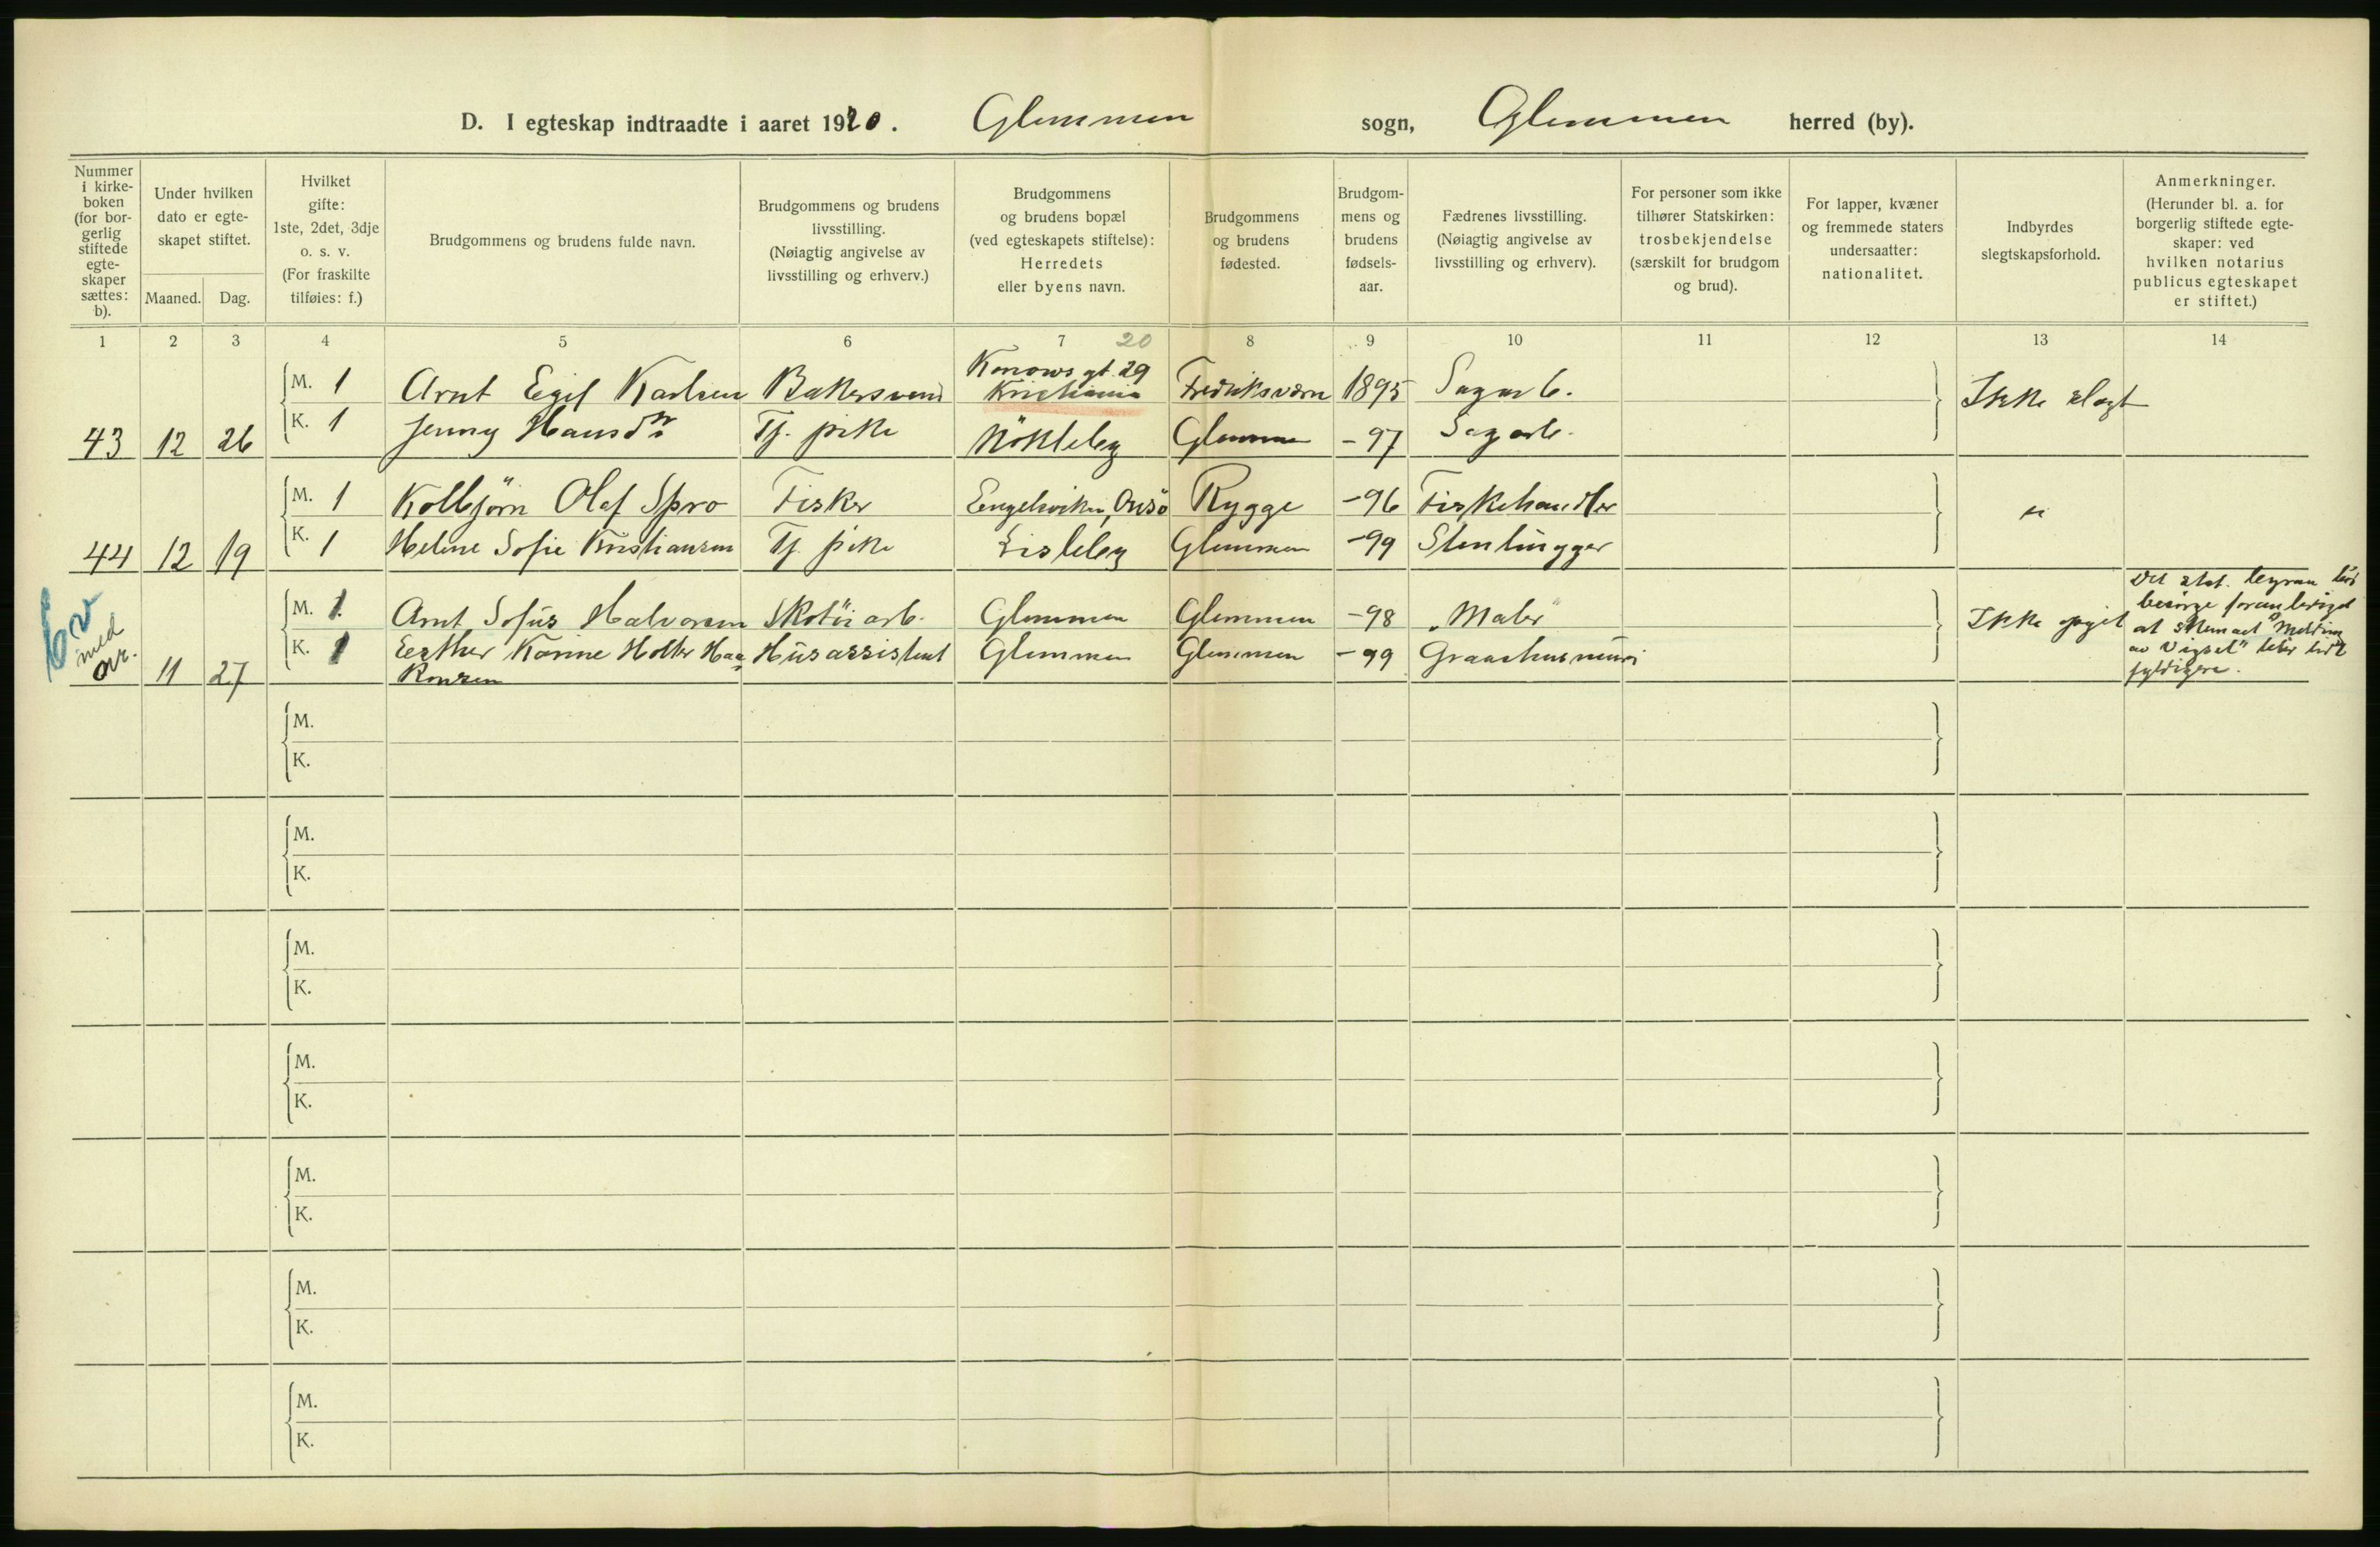 D. I egteskap indtraadte i aaret 1920. Glemmen sogn, Glemmen herred (by).
Nummer i kirke-boken (for bor-gerlig stiftede egte-skaper sættes: b).
Under hvilken dato er egte-skapet stiftet.
Maaned. Dag.
Hvilket gifte: 1ste, 2det, 3dje o. s. v. (For fraskilte tilføies: f.)
Brudgommens og brudens fulde navn.
Brudgommens og brudens livsstilling. (Nøiagtig angivelse av livsstilling og erhverv.)
Brudgommens og brudens bopæl (ved egteskapets stiftelse): Herredets eller byens navn.
Brudgommens og brudens fødested.
Brudgom-mens og brudens fødsels-aar.
Fædrenes livsstilling. (Nøiagtig angivelse av livsstilling og erhverv).
For personer som ikke tilhører Statskirken: trosbekjendelse (særskilt for brudgom og brud).
For lapper, kvæner og fremmede staters undersaatter: nationalitet.
Indbyrdes slegtskapsforhold.
Anmerkninger. (Herunder bl. a. for borgerlig stiftede egte-skaper: ved hvilken notarius publicus egteskapet er stiftet.)
1 2 3 4 5 6 7 8 9 10 11 12 13 14
20
Konows gt. 29
M. 1 Arnt Egil Karlsen Bakersvend Kristiania Fredriksværn 1895 Sagarb. Ikke slegt
43 12 26 K. 1 Jenny Hansdn Tj. pike Nökleby Glemmen -97 Sagarb.
M. 1 Kolbjörn Olaf Spro Fisker Engelsviken, Onsö Rygge -96 Fiskehandler "
44 12 19 K. 1 Helene Sofie Kristiansen Tj. pike Lisleby Glemmen -99 Stenhugger
M. 1 Arnt Sofus Halvorsen Skotöiarb. Glemmen Glemmen -98 "Maler" Ikke opgit
med ovr. 11 27 K. 1 Esther Karine Holter Haa- Husassistent Glemmen Glemmen -99
Det stat. byraa
besörge foranlediget
at skemaet "Melding
av Vigsel" blir
fyldigere.
M.
K.
M.
K.
M.
K.
M.
K.
M.
K.
M.
K.
M.
K.